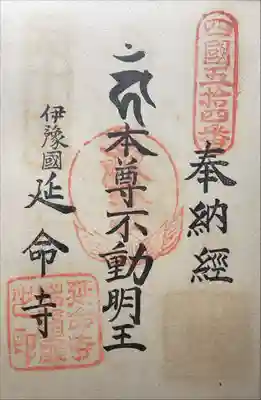 四國五拾四番
奉納經
本尊不動明王
伊豫國
延命寺